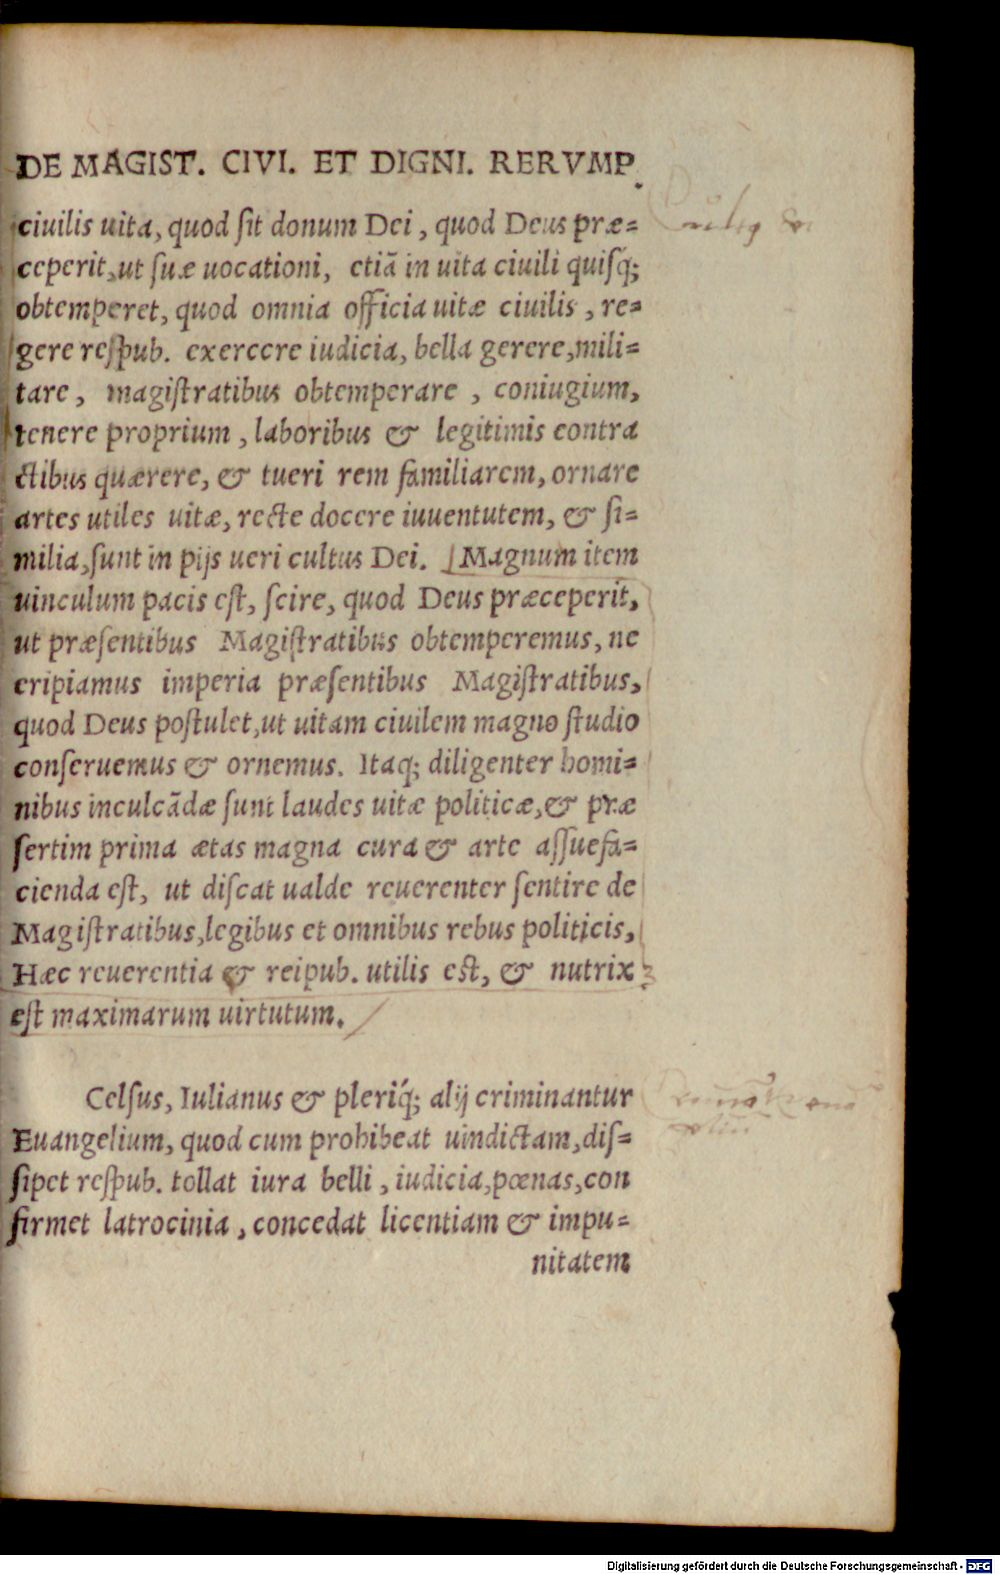 DE MAGIST. CIVI. ET DIGNI. RERVMP.
ciuilis uita, quod ſit donum Dei, quod Deus præ=
ceperit, ut ſuæ uocationi, etiã in uita ciuili quiſq́;
obtemperet, quod omnia officia uitæ ciuilis, re=
gere reſpub. exercere iudicia, bella gerere, mili=
tare, magiſtratibus obtemperare, coniugium,
tenere proprium, laboribus & legitimis contra
ctibus quærere, & tueri rem familiarem, ornare
artes utiles uitæ, recte docere iuuentutem, & ſi=
milia, ſunt in pijs ueri cultus Dei. Magnum item
uinculum pacis eſt, ſcire, quod Deus præceperit,
ut præſentibus Magiſtratibus obtemperemus, ne
eripiamus imperia præſentibus Magiſtratibus,
quod Deus poſtulet, ut uitam ciuilem magno ſtudio
conſeruemus & ornemus. Itaq; diligenter homi=
nibus inculcãdæ ſunt laudes uitæ politicæ, & præ
ſertim prima ætas magna cura & arte aſſuefa=
cienda eſt, ut diſcat ualde reuerenter ſentire de
Magiſtratibus, legibus et omnibus rebus politicis,
Hæc reuerentia & reipub. utilis eſt, & nutrix
eſt maximarum uirtutum.
Celſus, Iulianus & pleriq́; alij criminantur
Euangelium, quod cum prohibeat uindictam, diſ=
ſipet reſpub. tollat iura belli, iudicia, pœnas, con
firmet latrocinia, concedat licentiam & impu=
nitatem
Digitalisierung gefördert durch die Deutsche Forschungsgemeinschaft - DFG